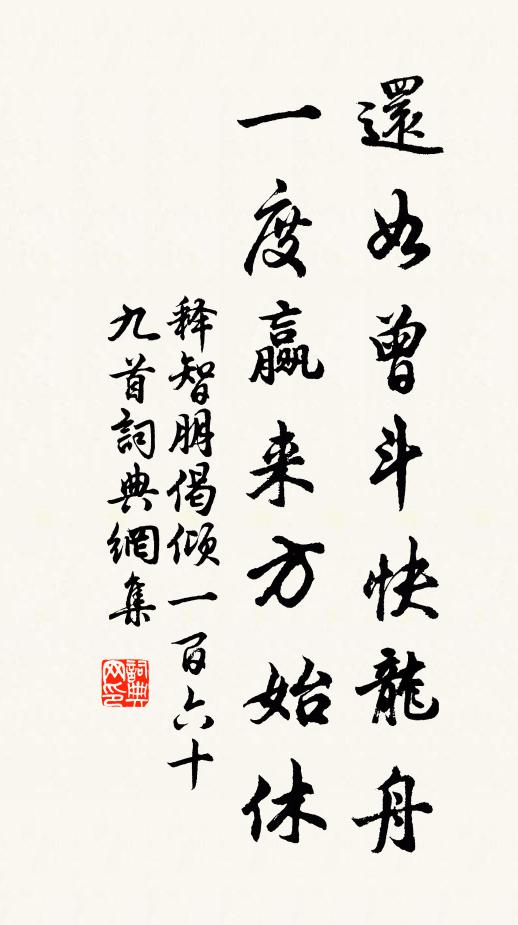 還如曾斗快龍舟
一度贏来方始休
释智朋偈倾一百六十
九首詞典網集
詞典网印